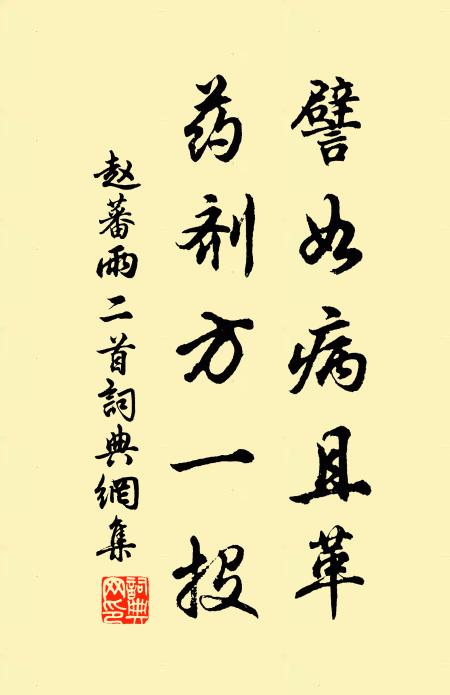 譬如病且革
药剂方一投
赵蕃雨二首詞典網集
詞典网印